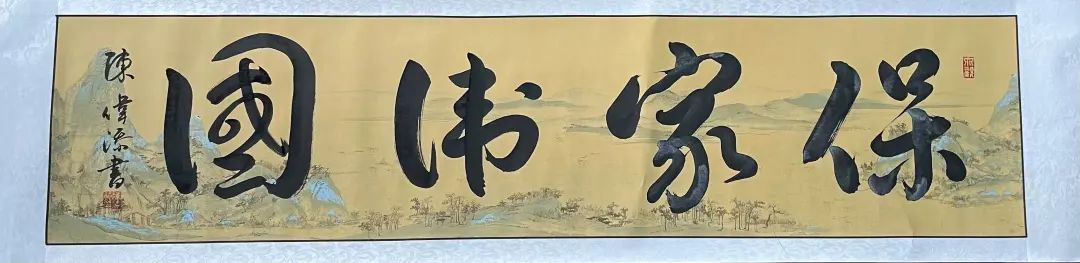 保家衛國
陳偉添書